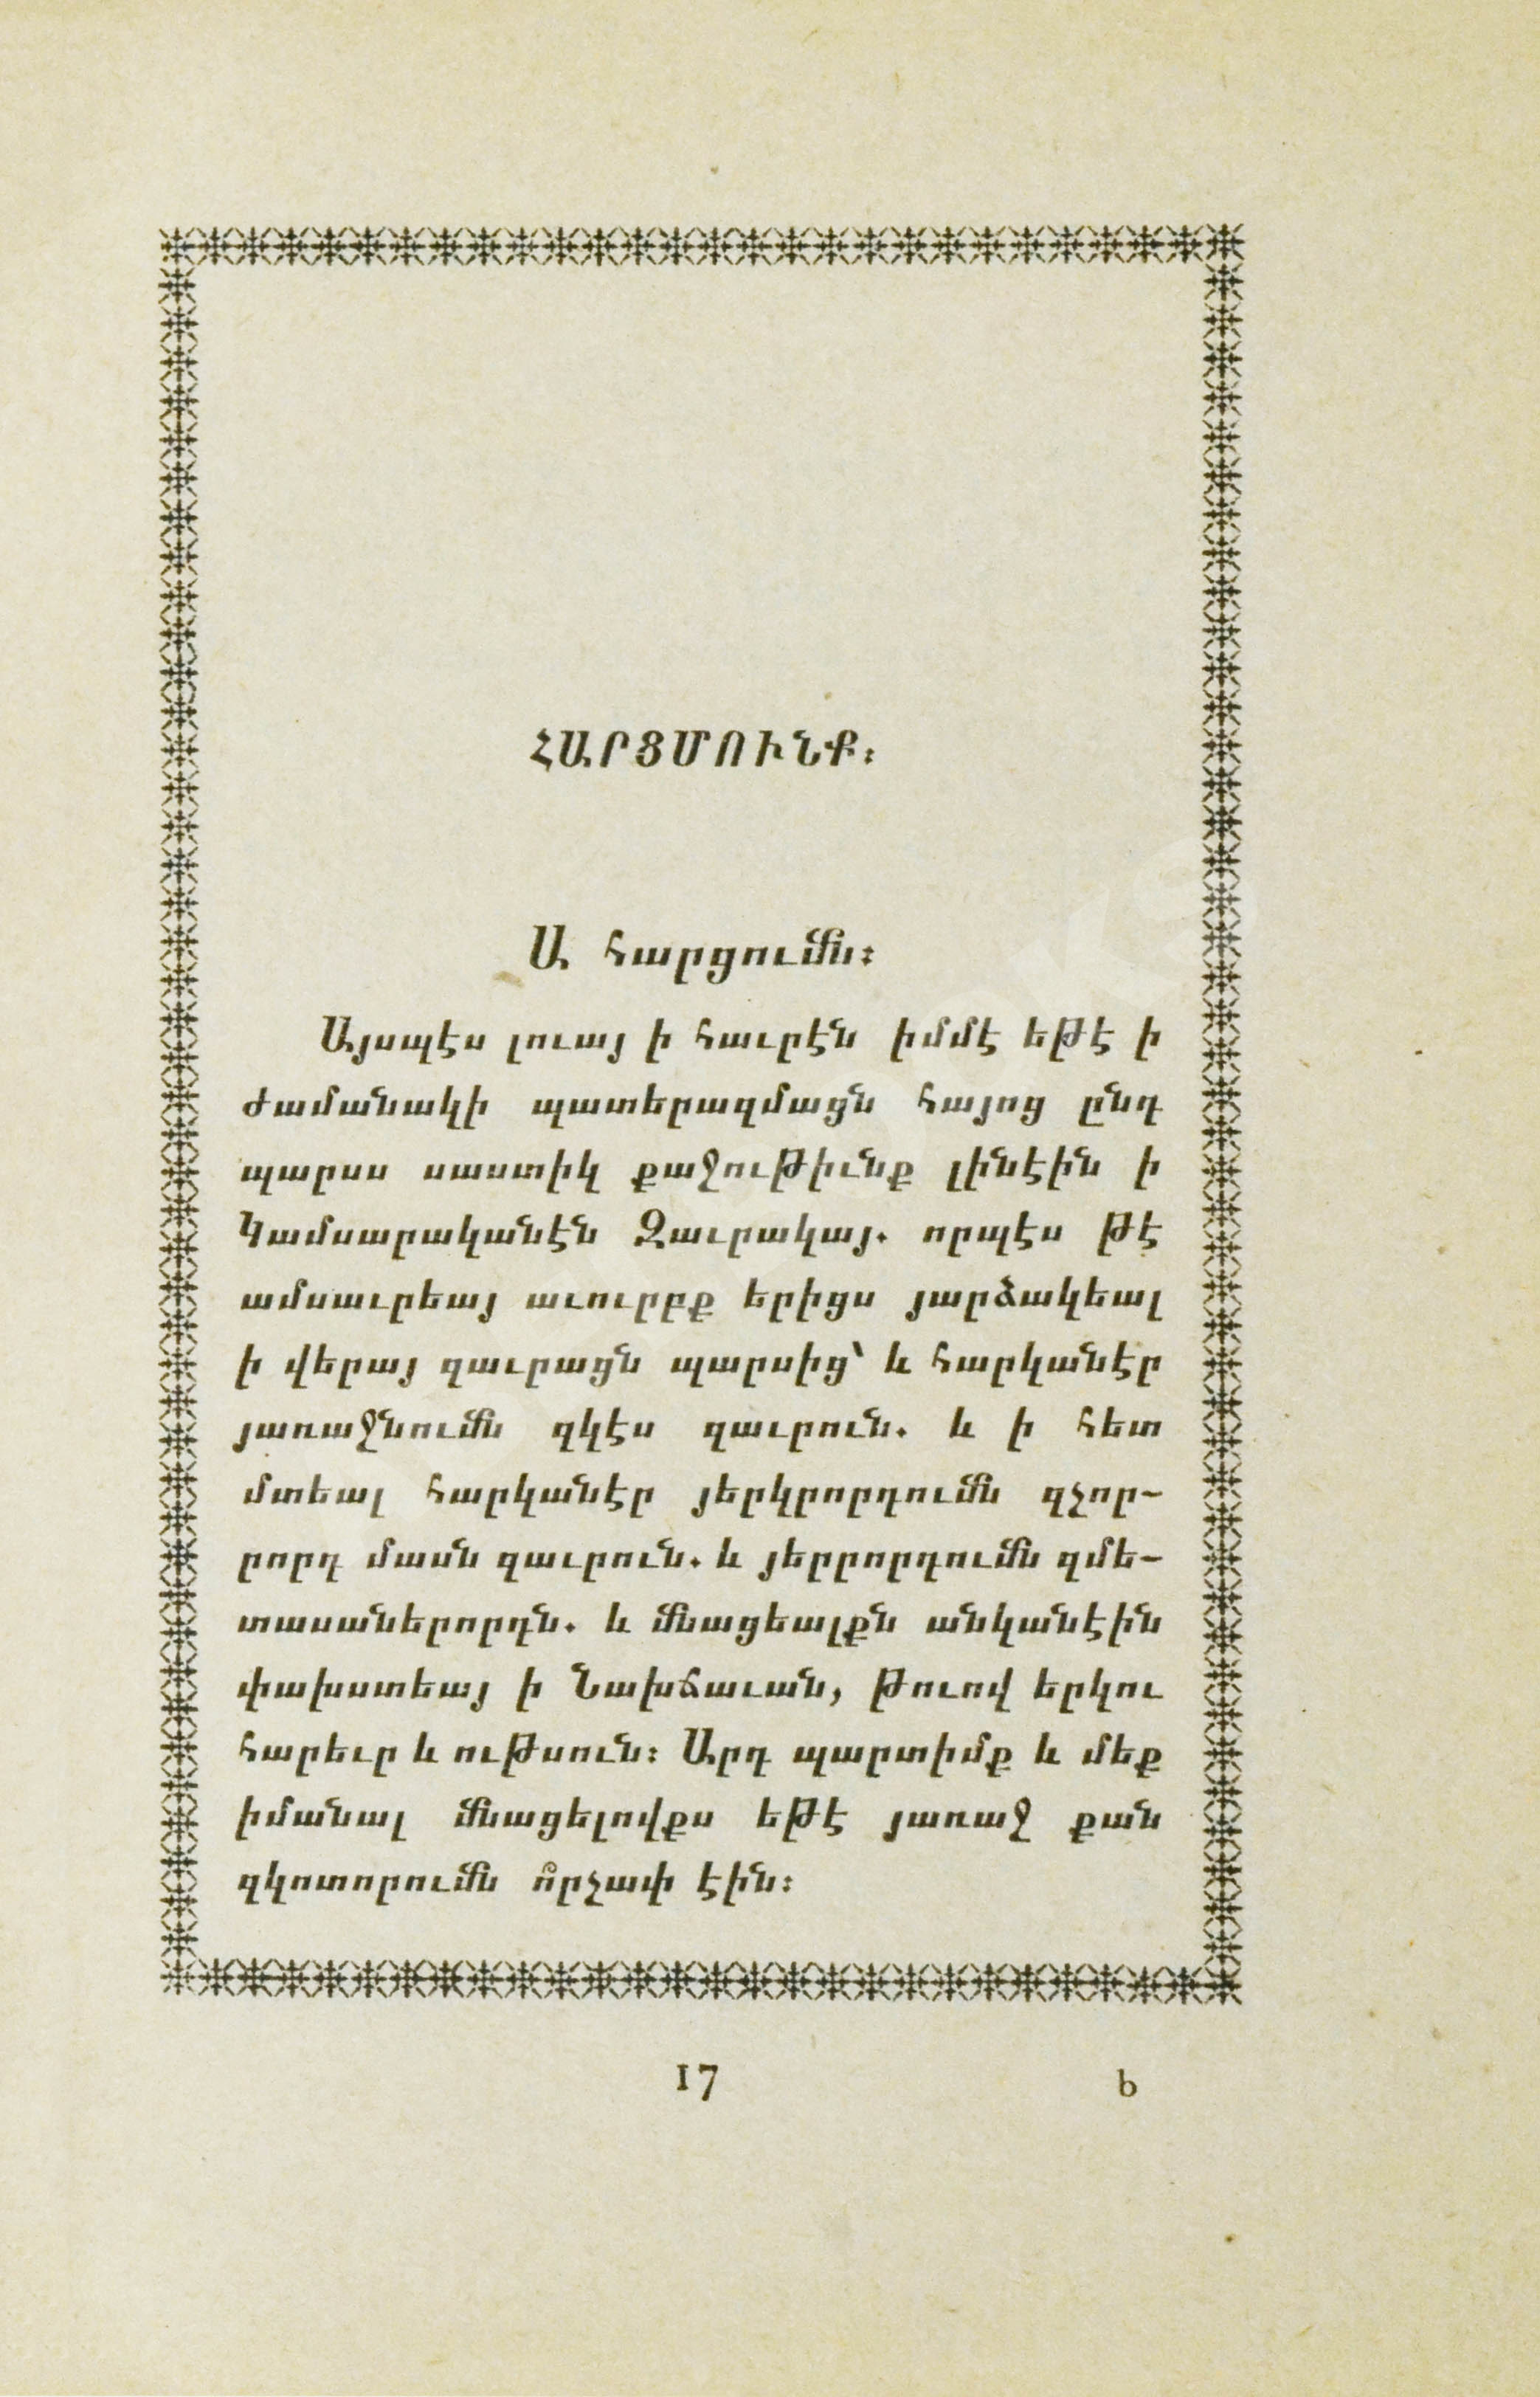 ՀԱՐՑՄՈՒՆՔ։
Ա հարցումն։
Այսպէս լուայ ի հաւրէն իմմէ եթէ ի
ժամանակի պատերազմացն հայոց ընդ
պարսս սաստիկ քաջութիւնք լինէին ի
Կամսարականէն Զաւրակայ. որպէս թէ
ամսաւրեայ աւուրբք երիցս յարձակեալ
ի վերայ զաւրացն պարսից՝ և հարկանէր
յառաջնումն զկէս զաւրուն. և ի հետ
մտեալ հարկանէր յերկրորդումն զչոր-
րորդ մասն զաւրուն. և յերրորդումն զմե-
տասաներորդն. և մնացեալքն անկանէին
փախստեայ ի Նախճաւան, թուով երկու
հարեւր և ութսուն։ Արդ պարտիմք և մեք
իմանալ մնացելովքս եթէ յառաջ քան
զկոտորումն ո՞րչափ էին։
17 b